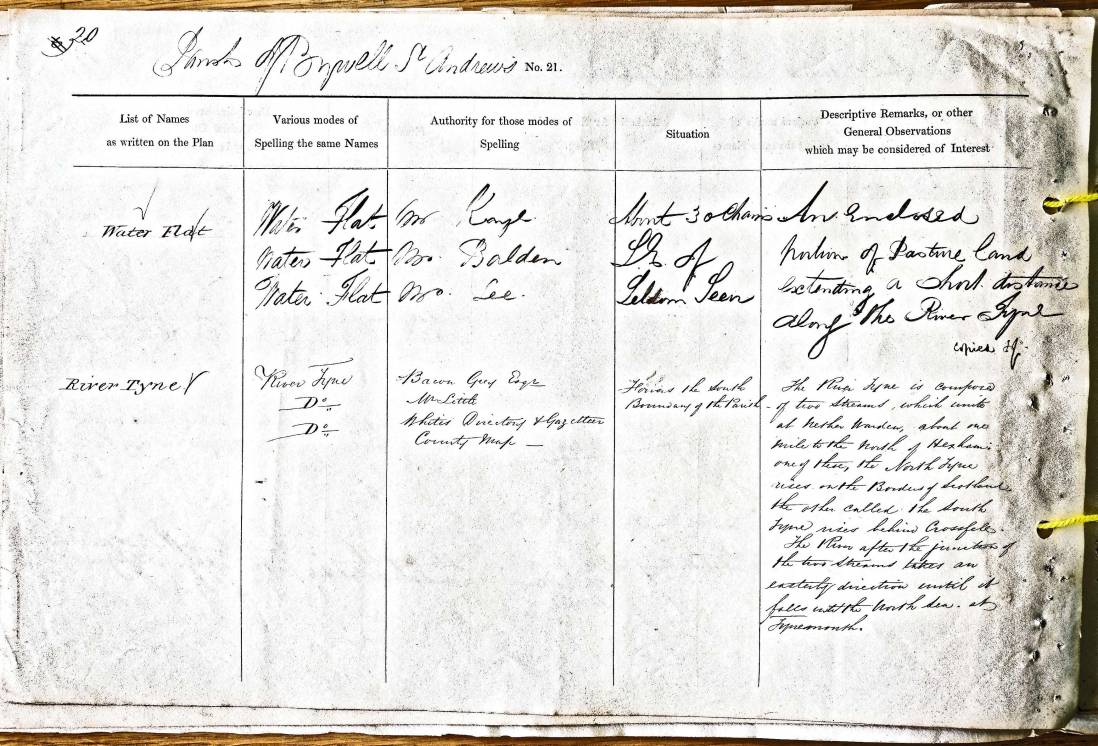 20
Parish of Bywell St Andrews No. 21.
List of Names
as written on the Plan
Various modes of
Spelling the same Names
Authority for those modes of
Spelling
Situation
Descriptive Remarks, or other
General Observations
which may be considered of Interest
Water Flat
Water Flat
Water Flat
Water Flat
Mr
Mr. Balden
Mr. Lee.
About 30 Chains
S.E. of
Seldom Seen
An Enclosed
portion of Pasture land
extending a short distance
along the River Tyne
copied
River Tyne
River Tyne
Do
Do
Bacon Grey Esqr
Mr Little
Whites Directory & Gazetteer
County Map —
Flows the South
Boundary of the Parish
The River Tyne is compose
of two Streams, which unite
at Nether Warden, about one
mile to the North of Hexham;
one of these, the North Tyne
rises on the Borders of Scotland
the other called the South
Tyne rises behind Crossfell.
The River after the junction of
the two Streams takes an
easterly direction until it
falls into the North Sea at
Tynemouth.